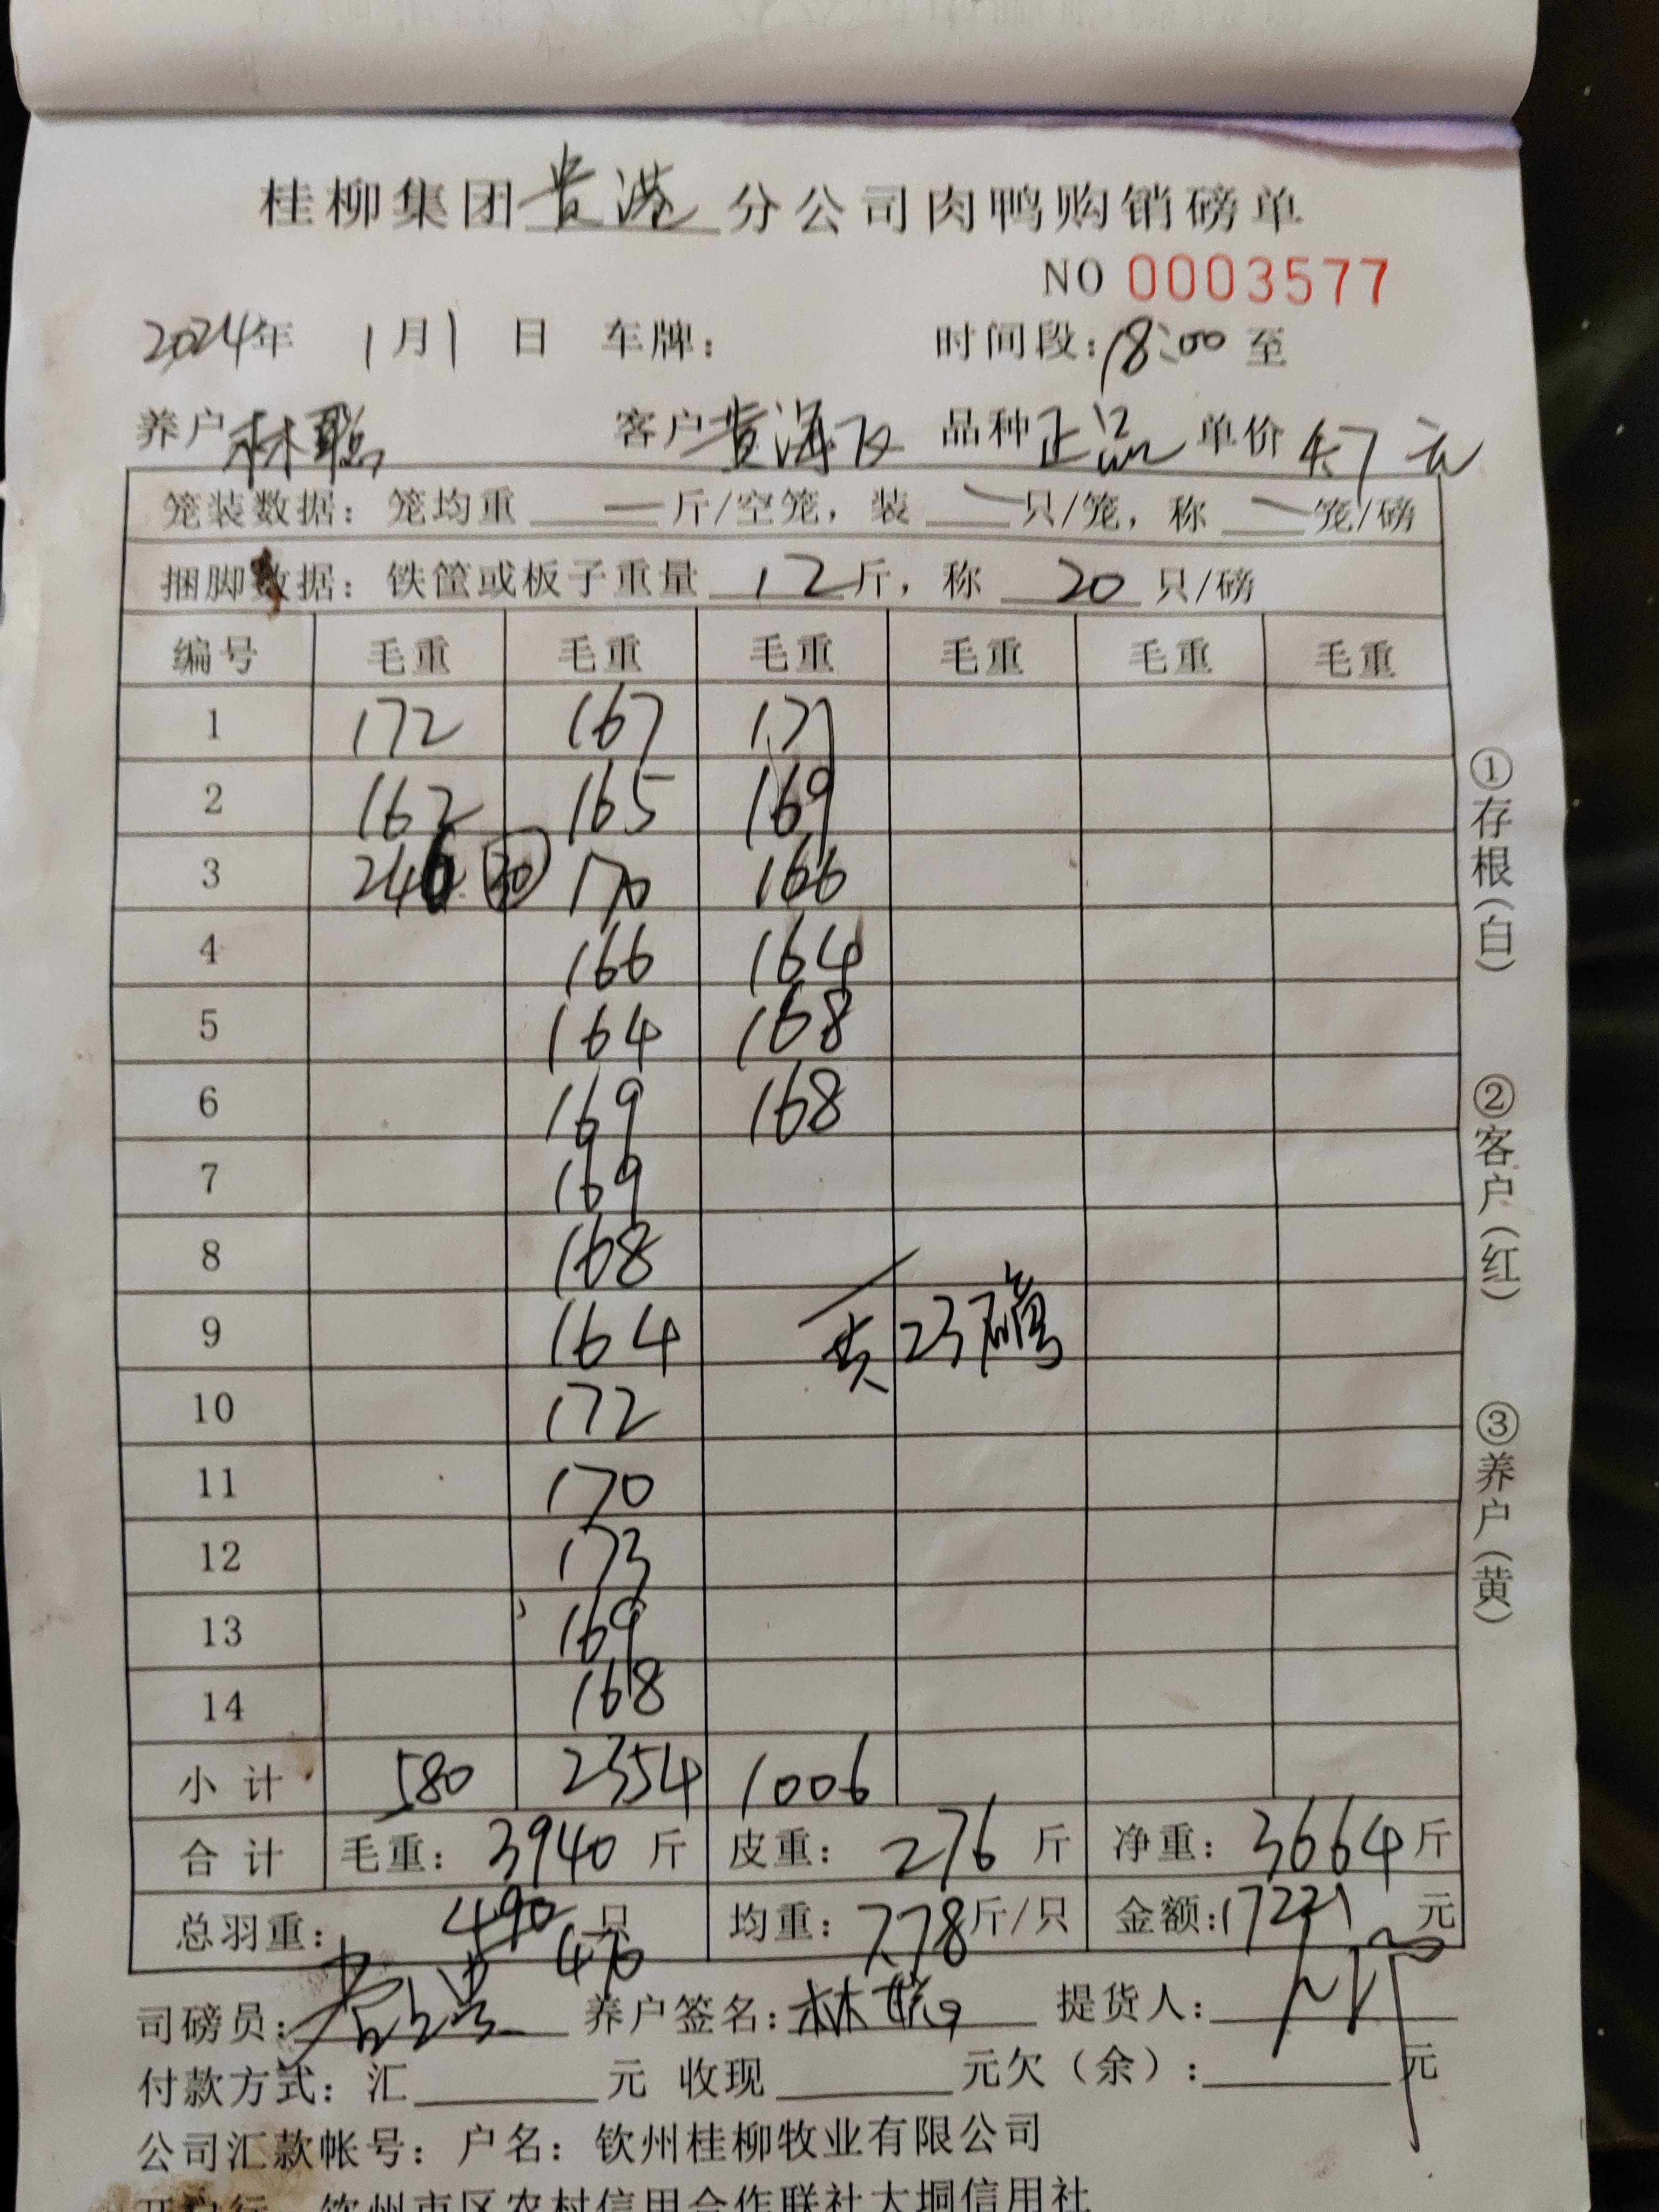 桂柳集团贵港分公司肉鸭购销磅单
NO 0003577
2024年 1月1日 车牌： 时间段：18:00 至
养户 林聪 客户 黄海飞 品种 正品 单价 4.7元
笼装数据：笼均重 — 斤/空笼，装 — 只/笼，称 — 笼/磅
捆脚数据：铁筐或板子重量 12 斤，称 20 只/磅
编号 毛重 毛重 毛重 毛重 毛重 毛重
1 172 167 171
2 162 165 169
3 246 30 170 166
4 166 164
5 164 168
6 169 168
7 169
8 168
9 164 共23磅
10 172
11 170
12 173
13 169
14 168
小计 580 2354 1006
合计 毛重：3940 斤 皮重：276 斤 净重：3664 斤
总羽重：490 只 均重：7.78 斤/只 金额：17221 元
470
司磅员： 养户签名：林聪 提货人：
付款方式：汇 元 收现 元欠（余）： 元
公司汇款帐号：户名：钦州桂柳牧业有限公司
开户行 钦州市区农村信用合作联社大垌信用社
①存根（白） ②客户（红） ③养户（黄）